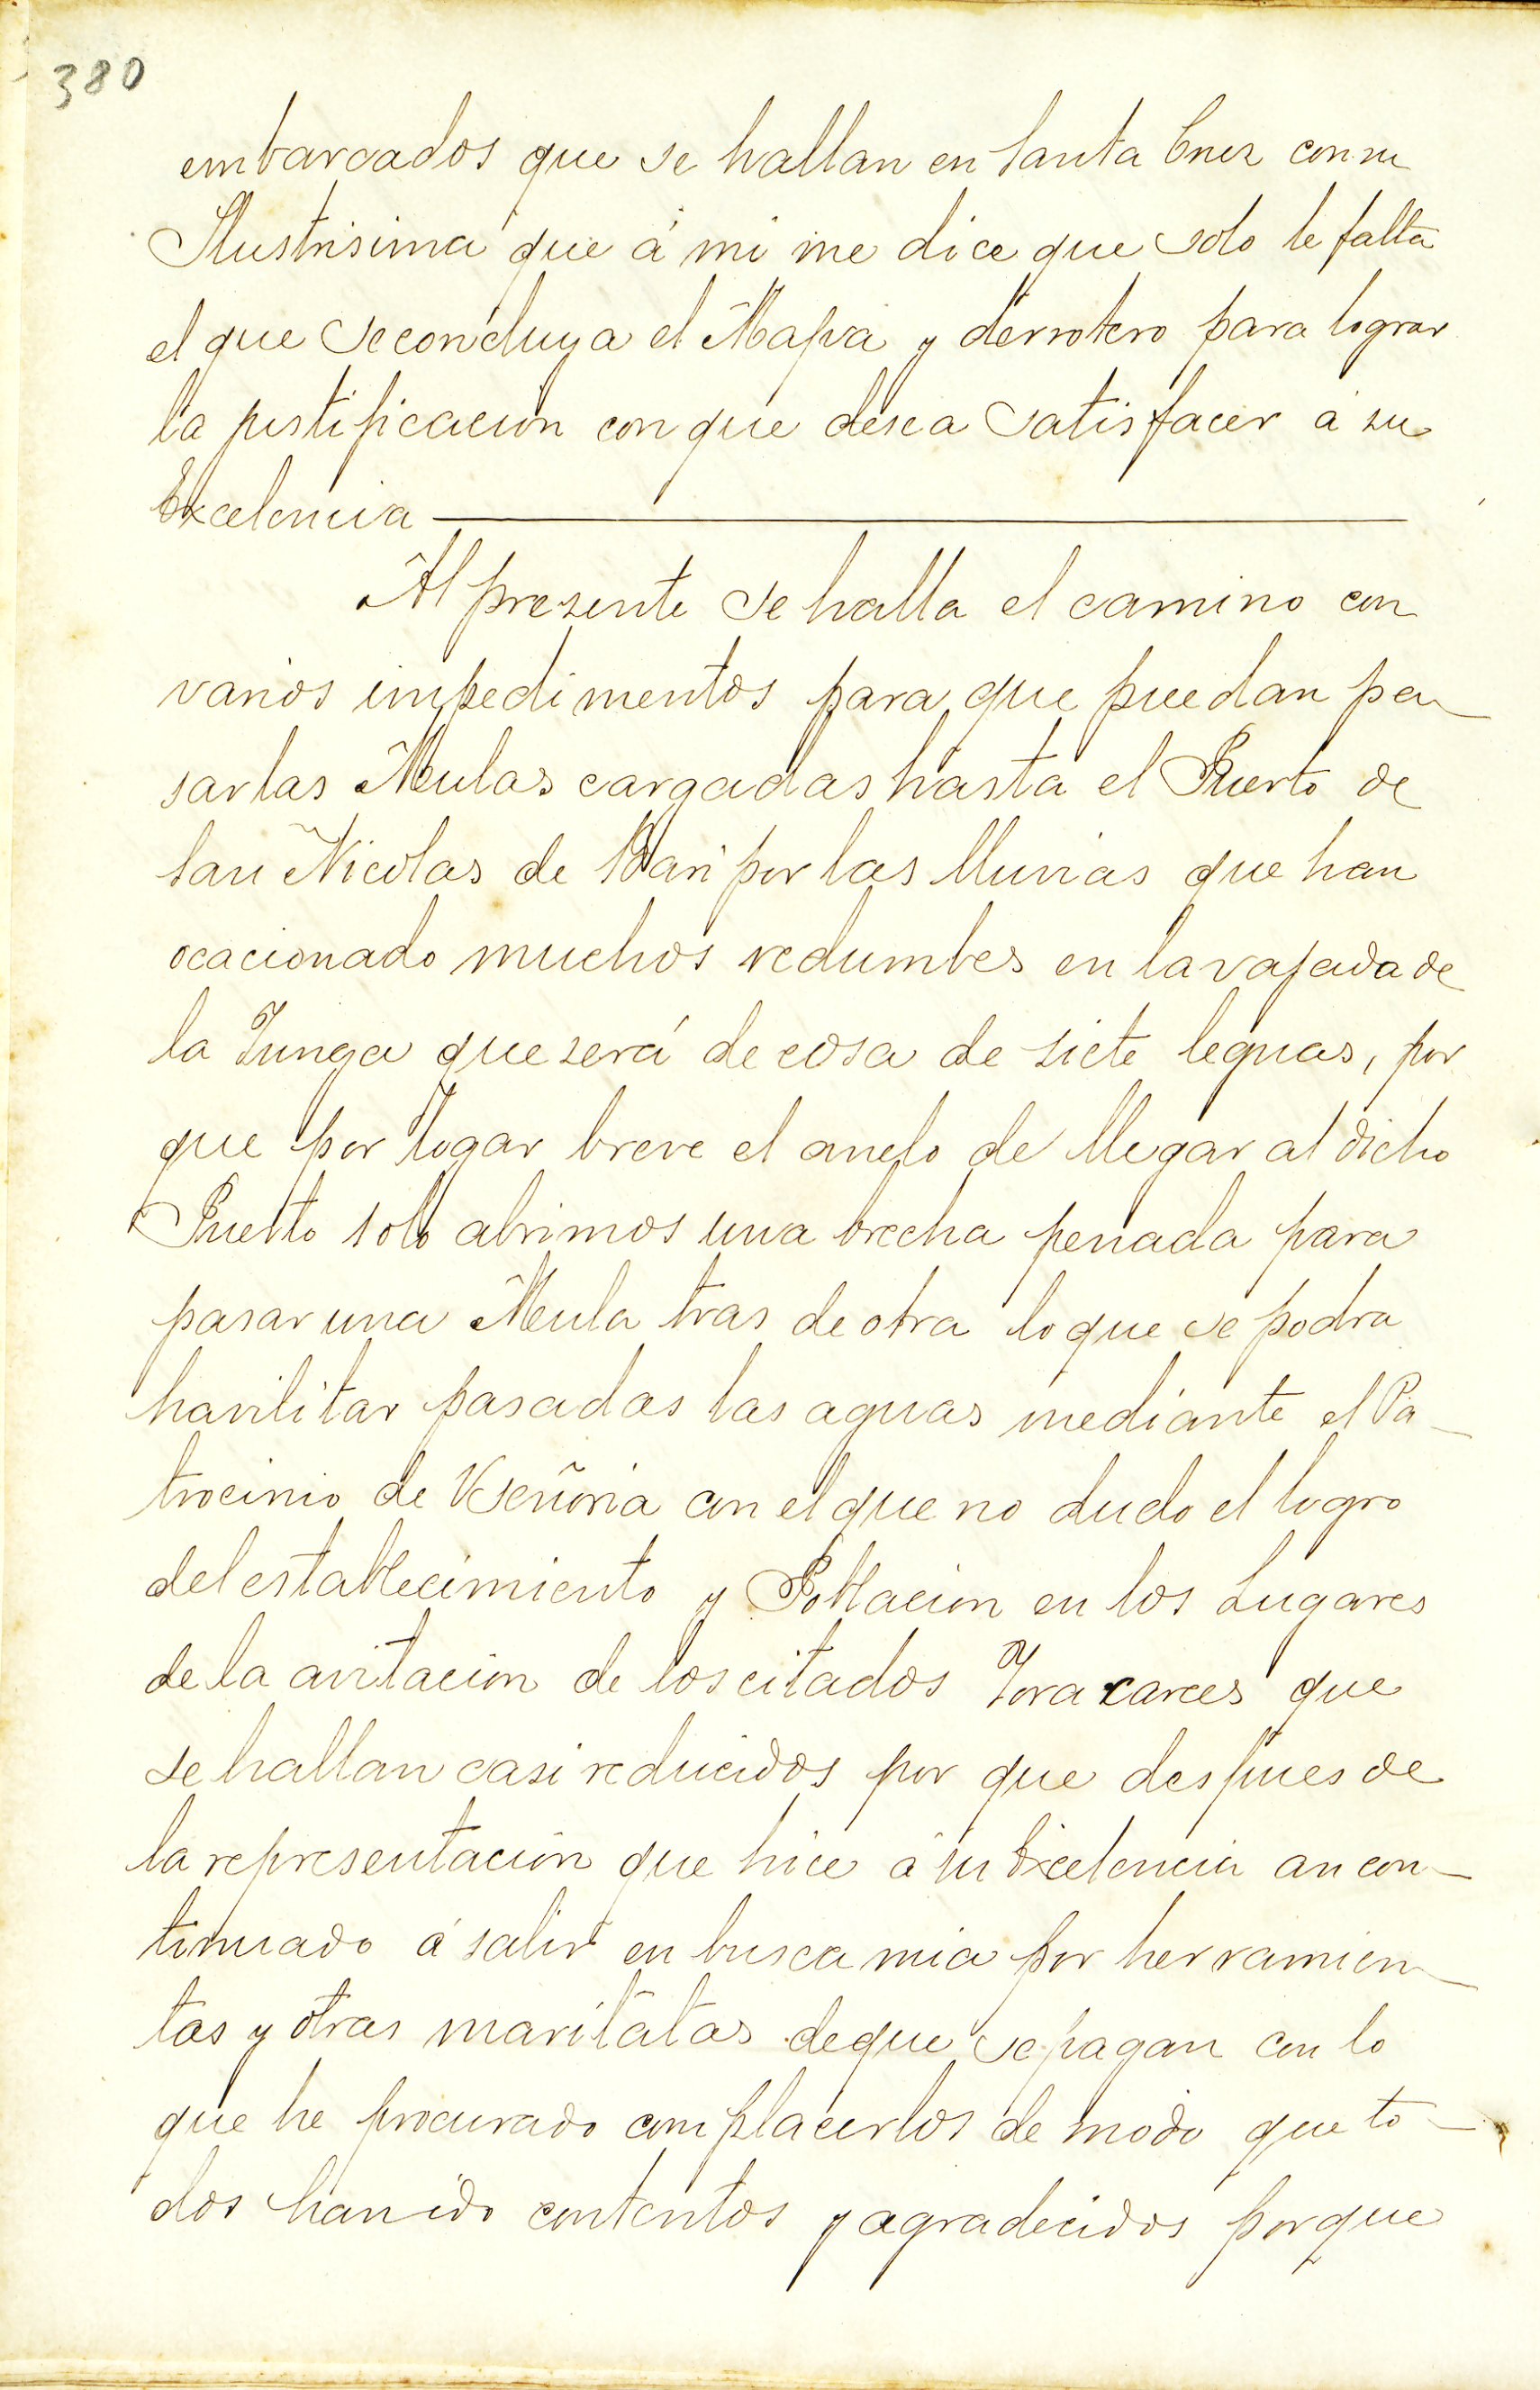 380
embarcados que se hallan en Santa Cruz con su
Ilustrisima que á mi me dice que solo le falta
el que se concluya el Mapa y derrotero para lograr
la justificacion con que desea satisfacer á su
Excelencia
Al presente se halla el camino con
varios impedimentos para que puedan pa
sar las Mulas cargadas hasta el Puerto de
San Nicolas de Bari por las lluvias que han
ocacionado muchos redumbes en la vajada de
la Yunga que será de cosa de siete leguas, por
que por logar breve el anelo de llegar al dicho
Puerto solo abrimos una brecha penada para
pasar una Mula tras de otra lo que se podra
havilitar pasadas las aguas mediante el Pa
trocinio de VSeñoria con el que no dudo el logro
del establecimiento y Poblacion en los Lugares
de la avitacion de los citados Yoracarees que
se hallan casi reducidos por que despues de
la representacion que hice á su Excelencia an con
tinuado á salir en busca mia por herramien
tas y otras maritatas de que se pagan con lo
que he procurado complacerlos de modo que to
dos han ido contentos y agradecidos porque